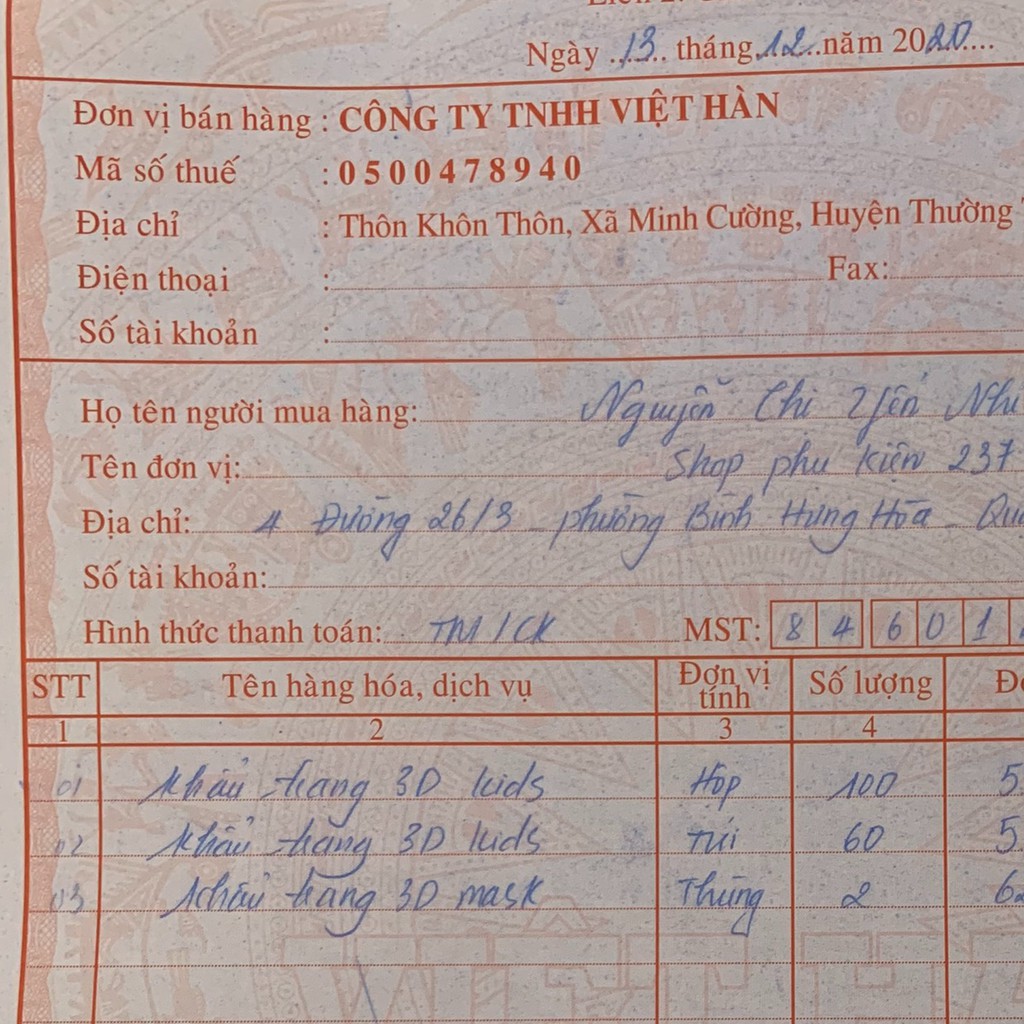 Ngày 13 tháng 12 năm 2020
Đơn vị bán hàng : CÔNG TY TNHH VIỆT HÀN
Mã số thuế : 0500478940
Địa chỉ : Thôn Khôn Thôn, Xã Minh Cường, Huyện Thường
Điện thoại : Fax:
Số tài khoản :
Họ tên người mua hàng: Nguyễn Chi Yến Nhi
Tên đơn vị: Shop phụ kiện 237
Địa chỉ: 4 Đường 26/3 - phường Bình Hưng Hòa - Qu
Số tài khoản:
Hình thức thanh toán: TM/CK MST: 8 4 6 0 1
STT Tên hàng hóa, dịch vụ Đơn vị tính Số lượng
1 2 3 4
01 Khẩu trang 3D kids Hộp 100 5
02 Khẩu trang 3D kids Túi 60 5
03 Khẩu trang 3D mask Thùng 2 62